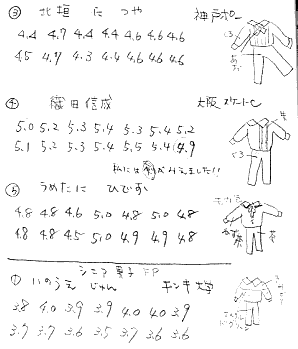 ③ 北垣 に つや 神戸ポー
4.4 4.7 4.4 4.4 4.6 4.6 4.6
4.5 4.7 4.3 4.4 4.6 4.6 4.6
④ 織田信成 大阪スケートC
5.0 5.2 5.3 5.4 5.3 5.4 5.2
5.1 5.2 5.3 5.4 5.5 5.4 4.9
私には がみえました!!
⑤ うめたに ひでお
4.8 4.8 4.6 5.0 4.8 5.0 4.8
4.8 4.8 4.5 5.0 4.9 4.9 4.8
シニア男子 FP
① いのうえ じゅん キンキ大学
3.8 4.0 3.9 3.9 4.0 4.0 3.9
3.7 3.7 3.6 3.5 3.7 3.6 3.6